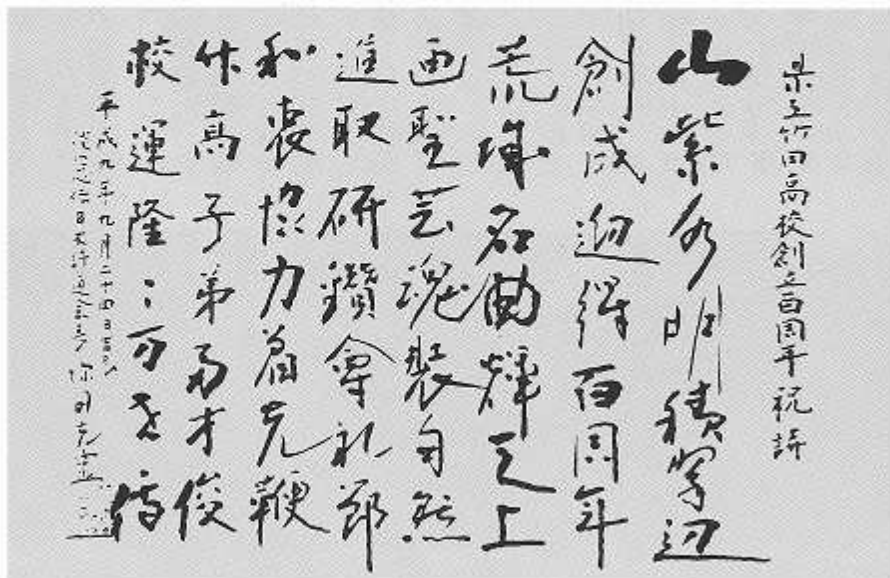 県立竹田高校創立百周年祝詩
山紫水明積翠辺
創成迎得百周年
荒城名曲輝天上
画聖芸魂装自然
進取研鑽尊礼節
和衷協力着先鞭
竹高子弟多才俊
校運隆々万世伝
平成九年九月二十四日